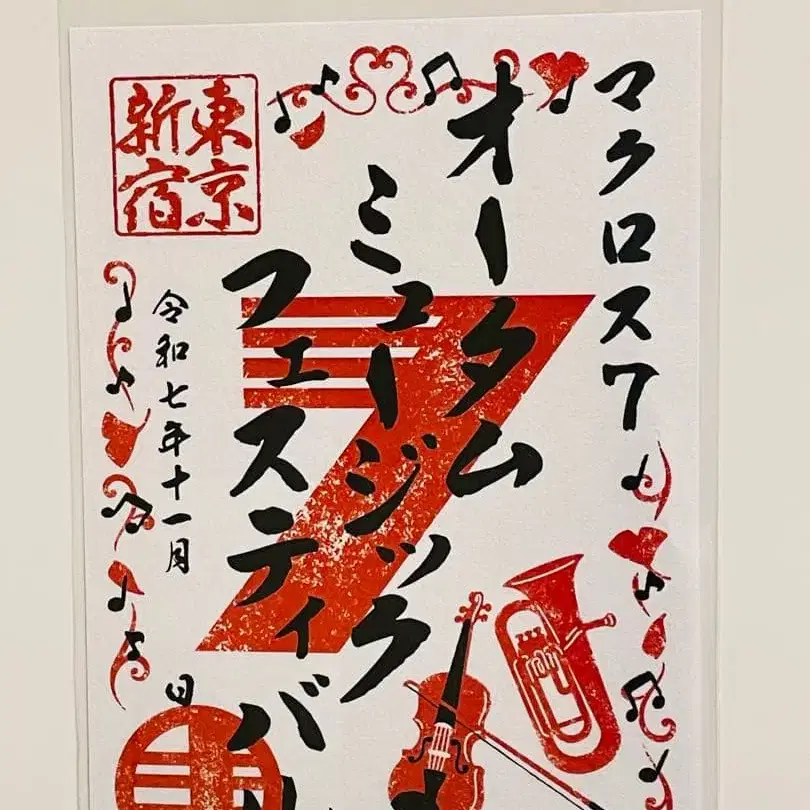 マクロス7
オータム
ミュージック
フェスティバル
東京
新宿
令和七年十一月
日